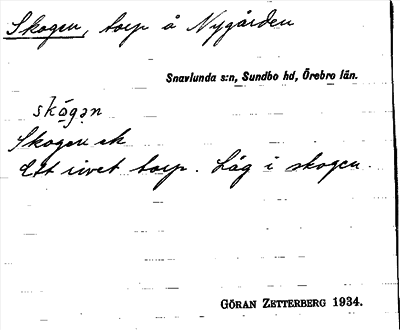 Skogen, torp å Nygården
Snavlunda s:n, Sundbo hd, Örebro län.
skógən
Skogen ek
Ett rivet torp. Låg i skogen.
GÖRAN ZETTERBERG 1934.